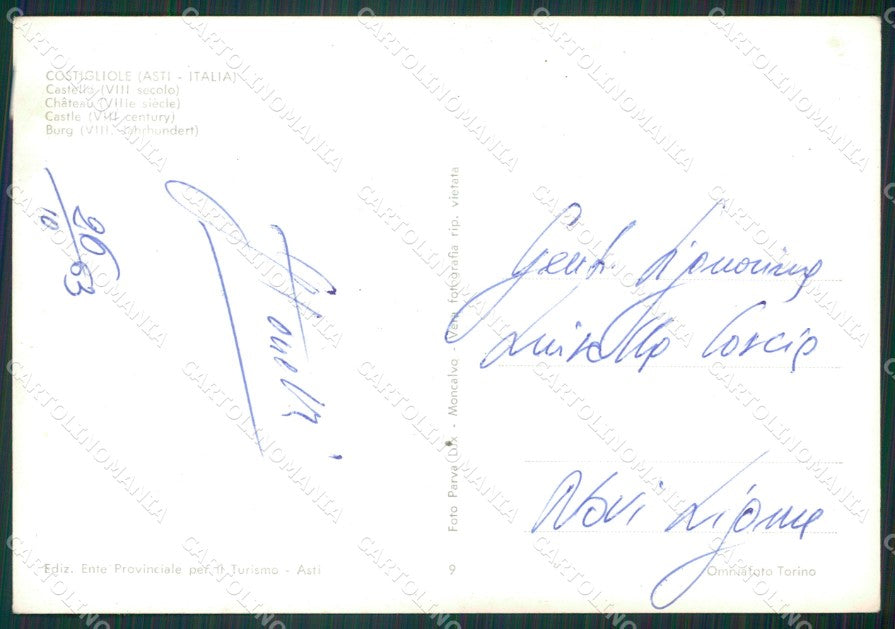 COSTIGLIOLE (ASTI - ITALIA)
Castello (VIII secolo)
Château (VIIIe siècle)
Castle (VIII century)
Burg (VIII. Jahrhundert)
26/10 63
Foto Parva Dix - Moncalvo - Vera fotografia rip. vietata
Gent. Signorina
Luisella Coscia
Novi Ligure
Ediz. Ente Provinciale per il Turismo - Asti
9
Omniafoto Torino
CARTOLINOMANIA